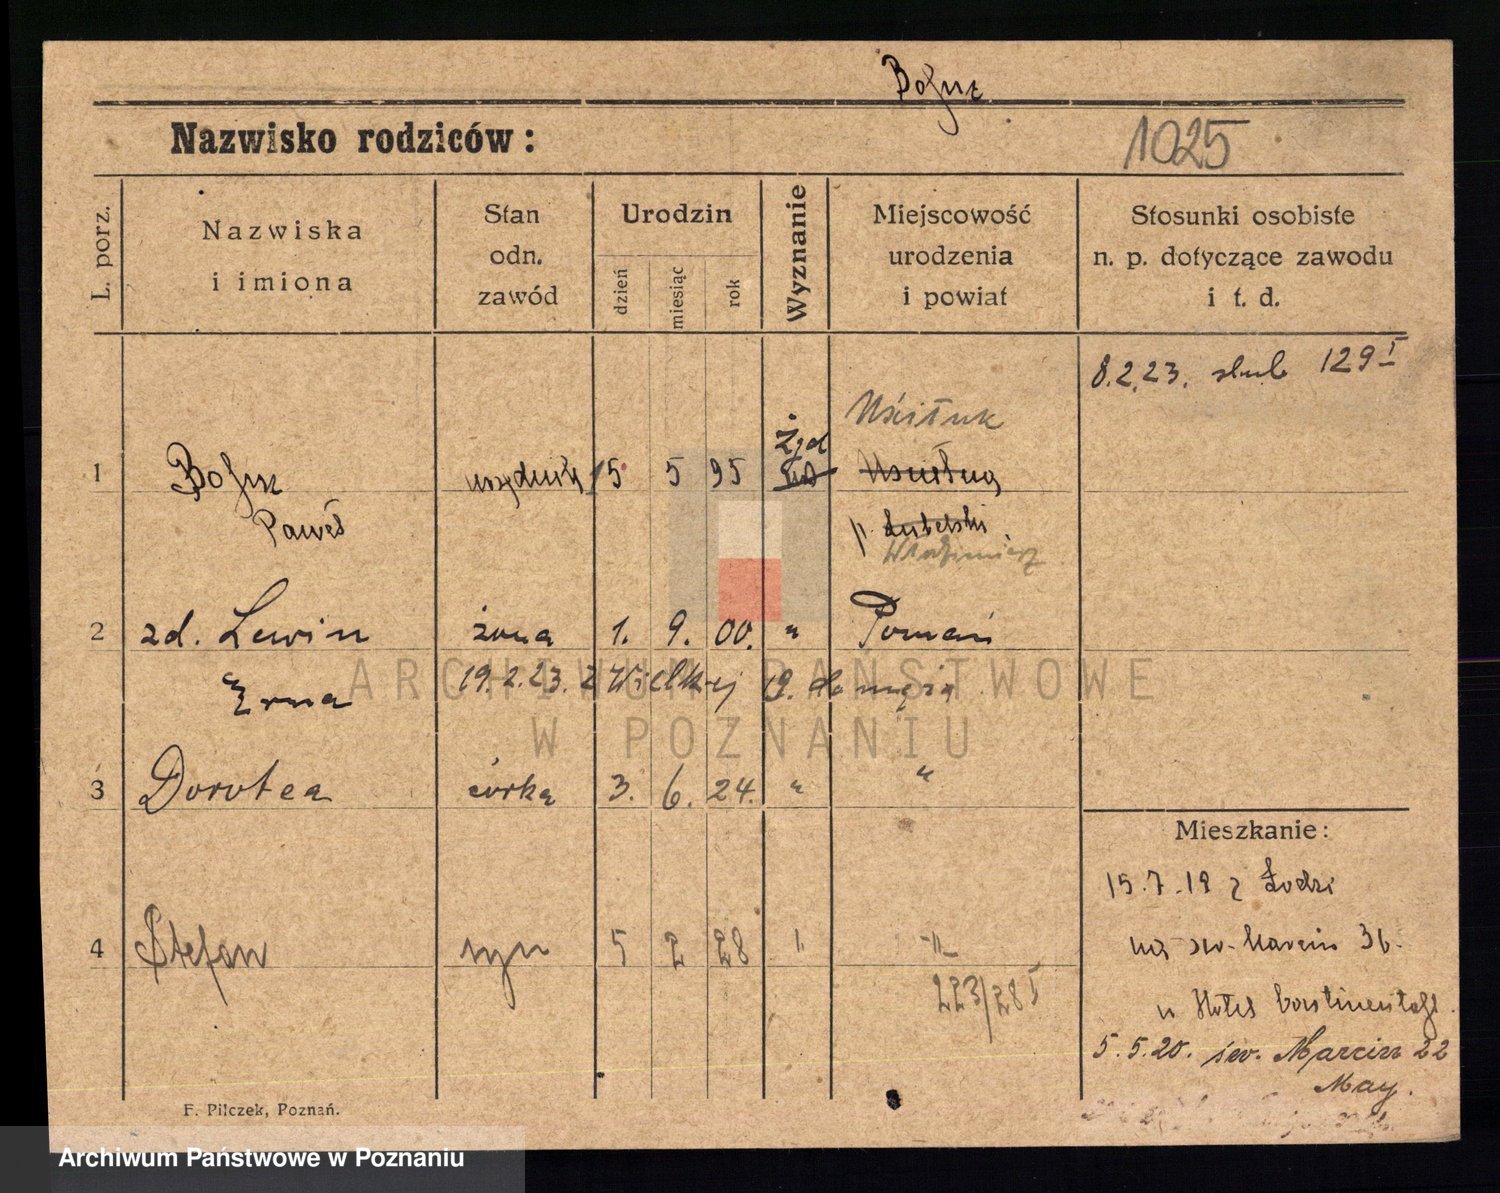 Bohm
Nazwisko rodziców:
1025
L. porz.
Nazwiska
i imiona
Stan
odn.
zawód
Urodzin
dzień
miesiąc
rok
Wyznanie
Miejscowość
urodzenia
i powiat
Stosunki osobiste
n. p. dotyczące zawodu
i t. d.
8.2.23. slub 129 I
Uściług
1 Bohm urzędnik 15 5 95 Żyd
Paweł p. Lubelski
Włodzimierz
2 zd. Lewin żona 1. 9. 00. " Poznań
Erna 19.2.23. z Wielkiej 19. do męża
3 Dorotea córka 3. 6. 24. " "
Mieszkanie:
15.7.19 z Łodzi
4 Stefan syn 5 2 28 " -"-
na św. Marcin 36.
223/28 I
w Hotel Continental
5.5.20. św. Marcin 22
May.
F. Pilczek, Poznań.
ARCHIWUM PAŃSTWOWE
W POZNANIU
Archiwum Państwowe w Poznaniu